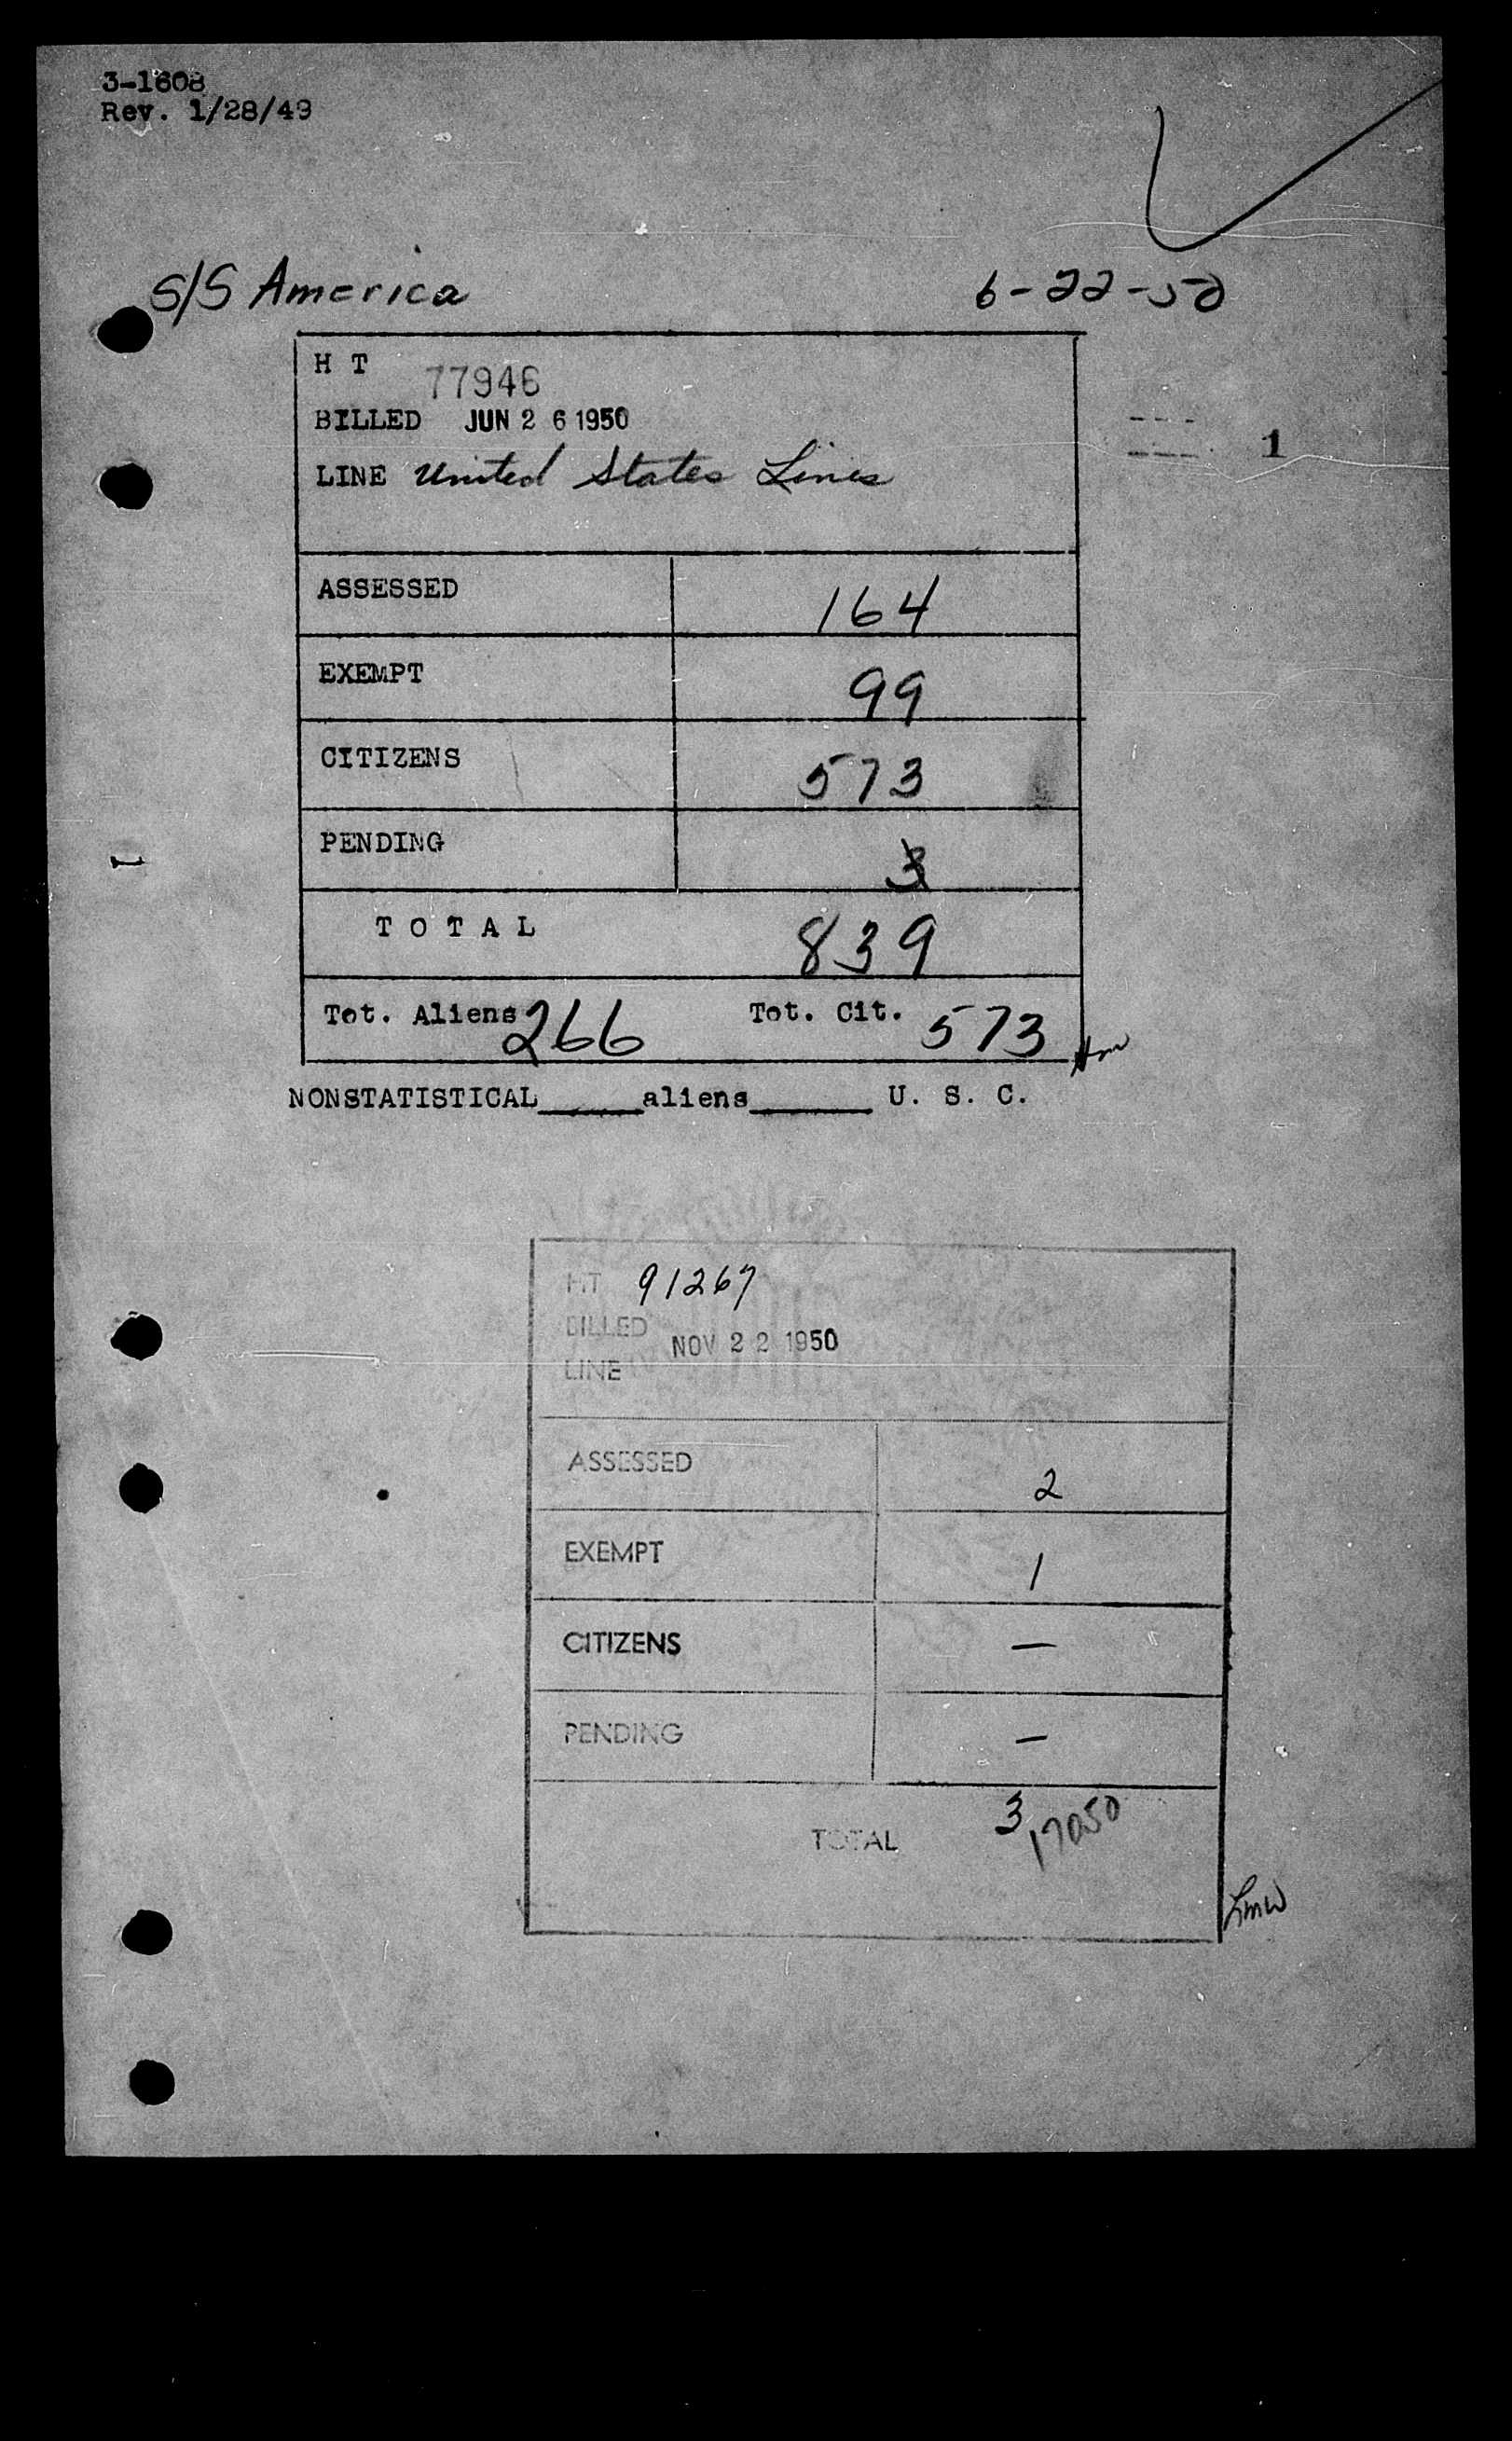 3-1608
Rev. 1/28/49
S/S America 6-22-50
H T 77946
BILLED JUN 26 1950
LINE United States Lines
1
ASSESSED 164
EXEMPT 99
CITIZENS 573
PENDING 3
T O T A L 839
Tot. Aliens 266 Tot. Cit. 573
NONSTATISTICAL______aliens_______ U. S. C.
HT 91267
BILLED NOV 22 1950
LINE
ASSESSED 2
EXEMPT 1
CITIZENS —
PENDING —
TOTAL 3 17050
Lmw